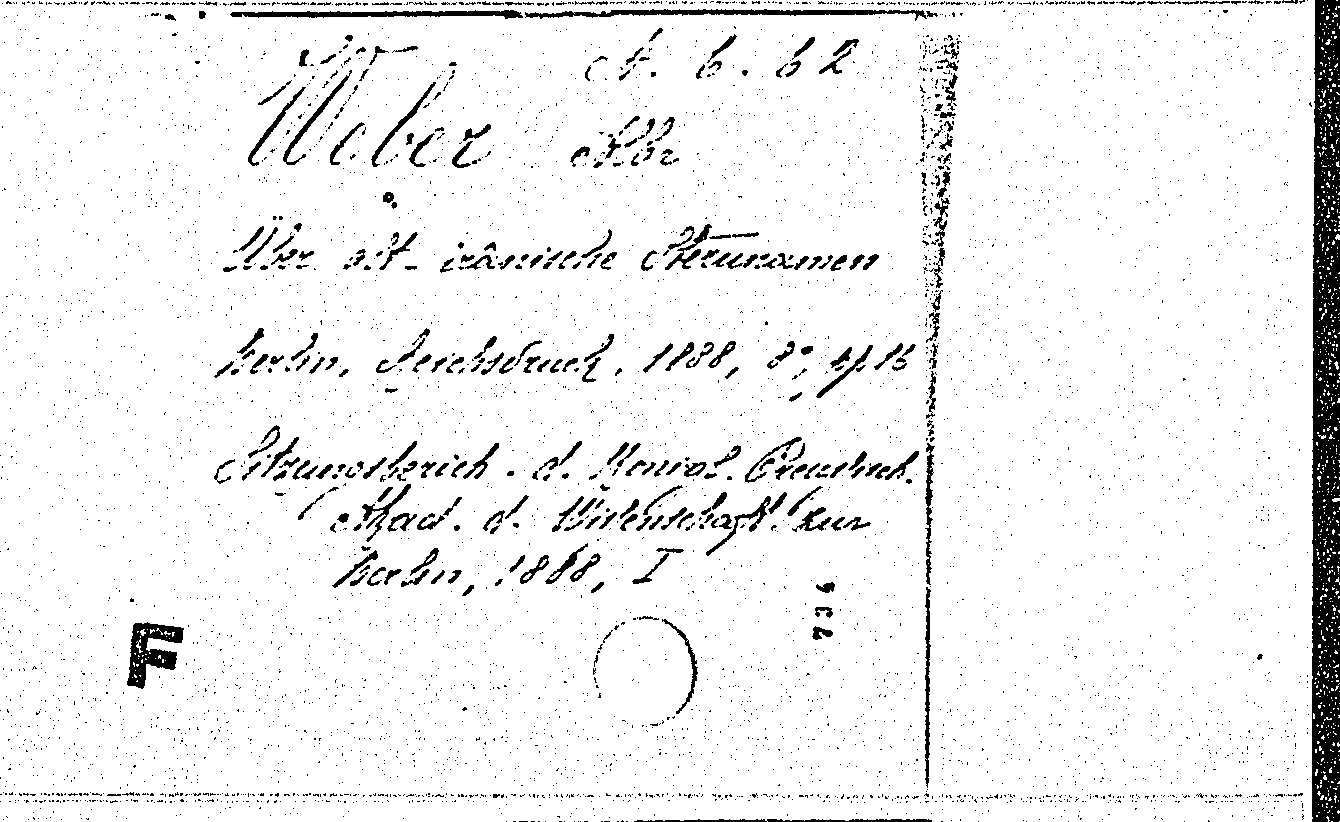 A. 6. 62
Weber Albr
Über alt-irânische Sternnamen
Berlin, Reichsdruck, 1888, 8°, pp 16
Sitzungsberich. d. Königl. Preussisch.
Akad. d. Wissenschaft. zur
Berlin, 1888, I
734
F